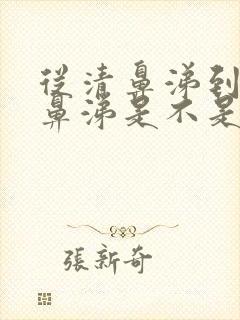 從清鼻涕到
鼻涕是不是
張新奇